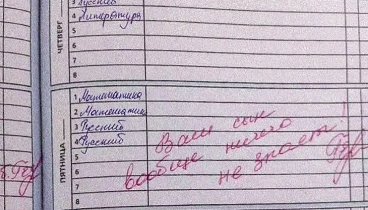 ЧЕТВЕРГ
3 Русский
4 Литература
5
6
7
8
ПЯТНИЦА
1 Математика
2 Математика
3 Русский
4 Русский
5
6
7
8
Ваш сын
вообще ничего
не знает!